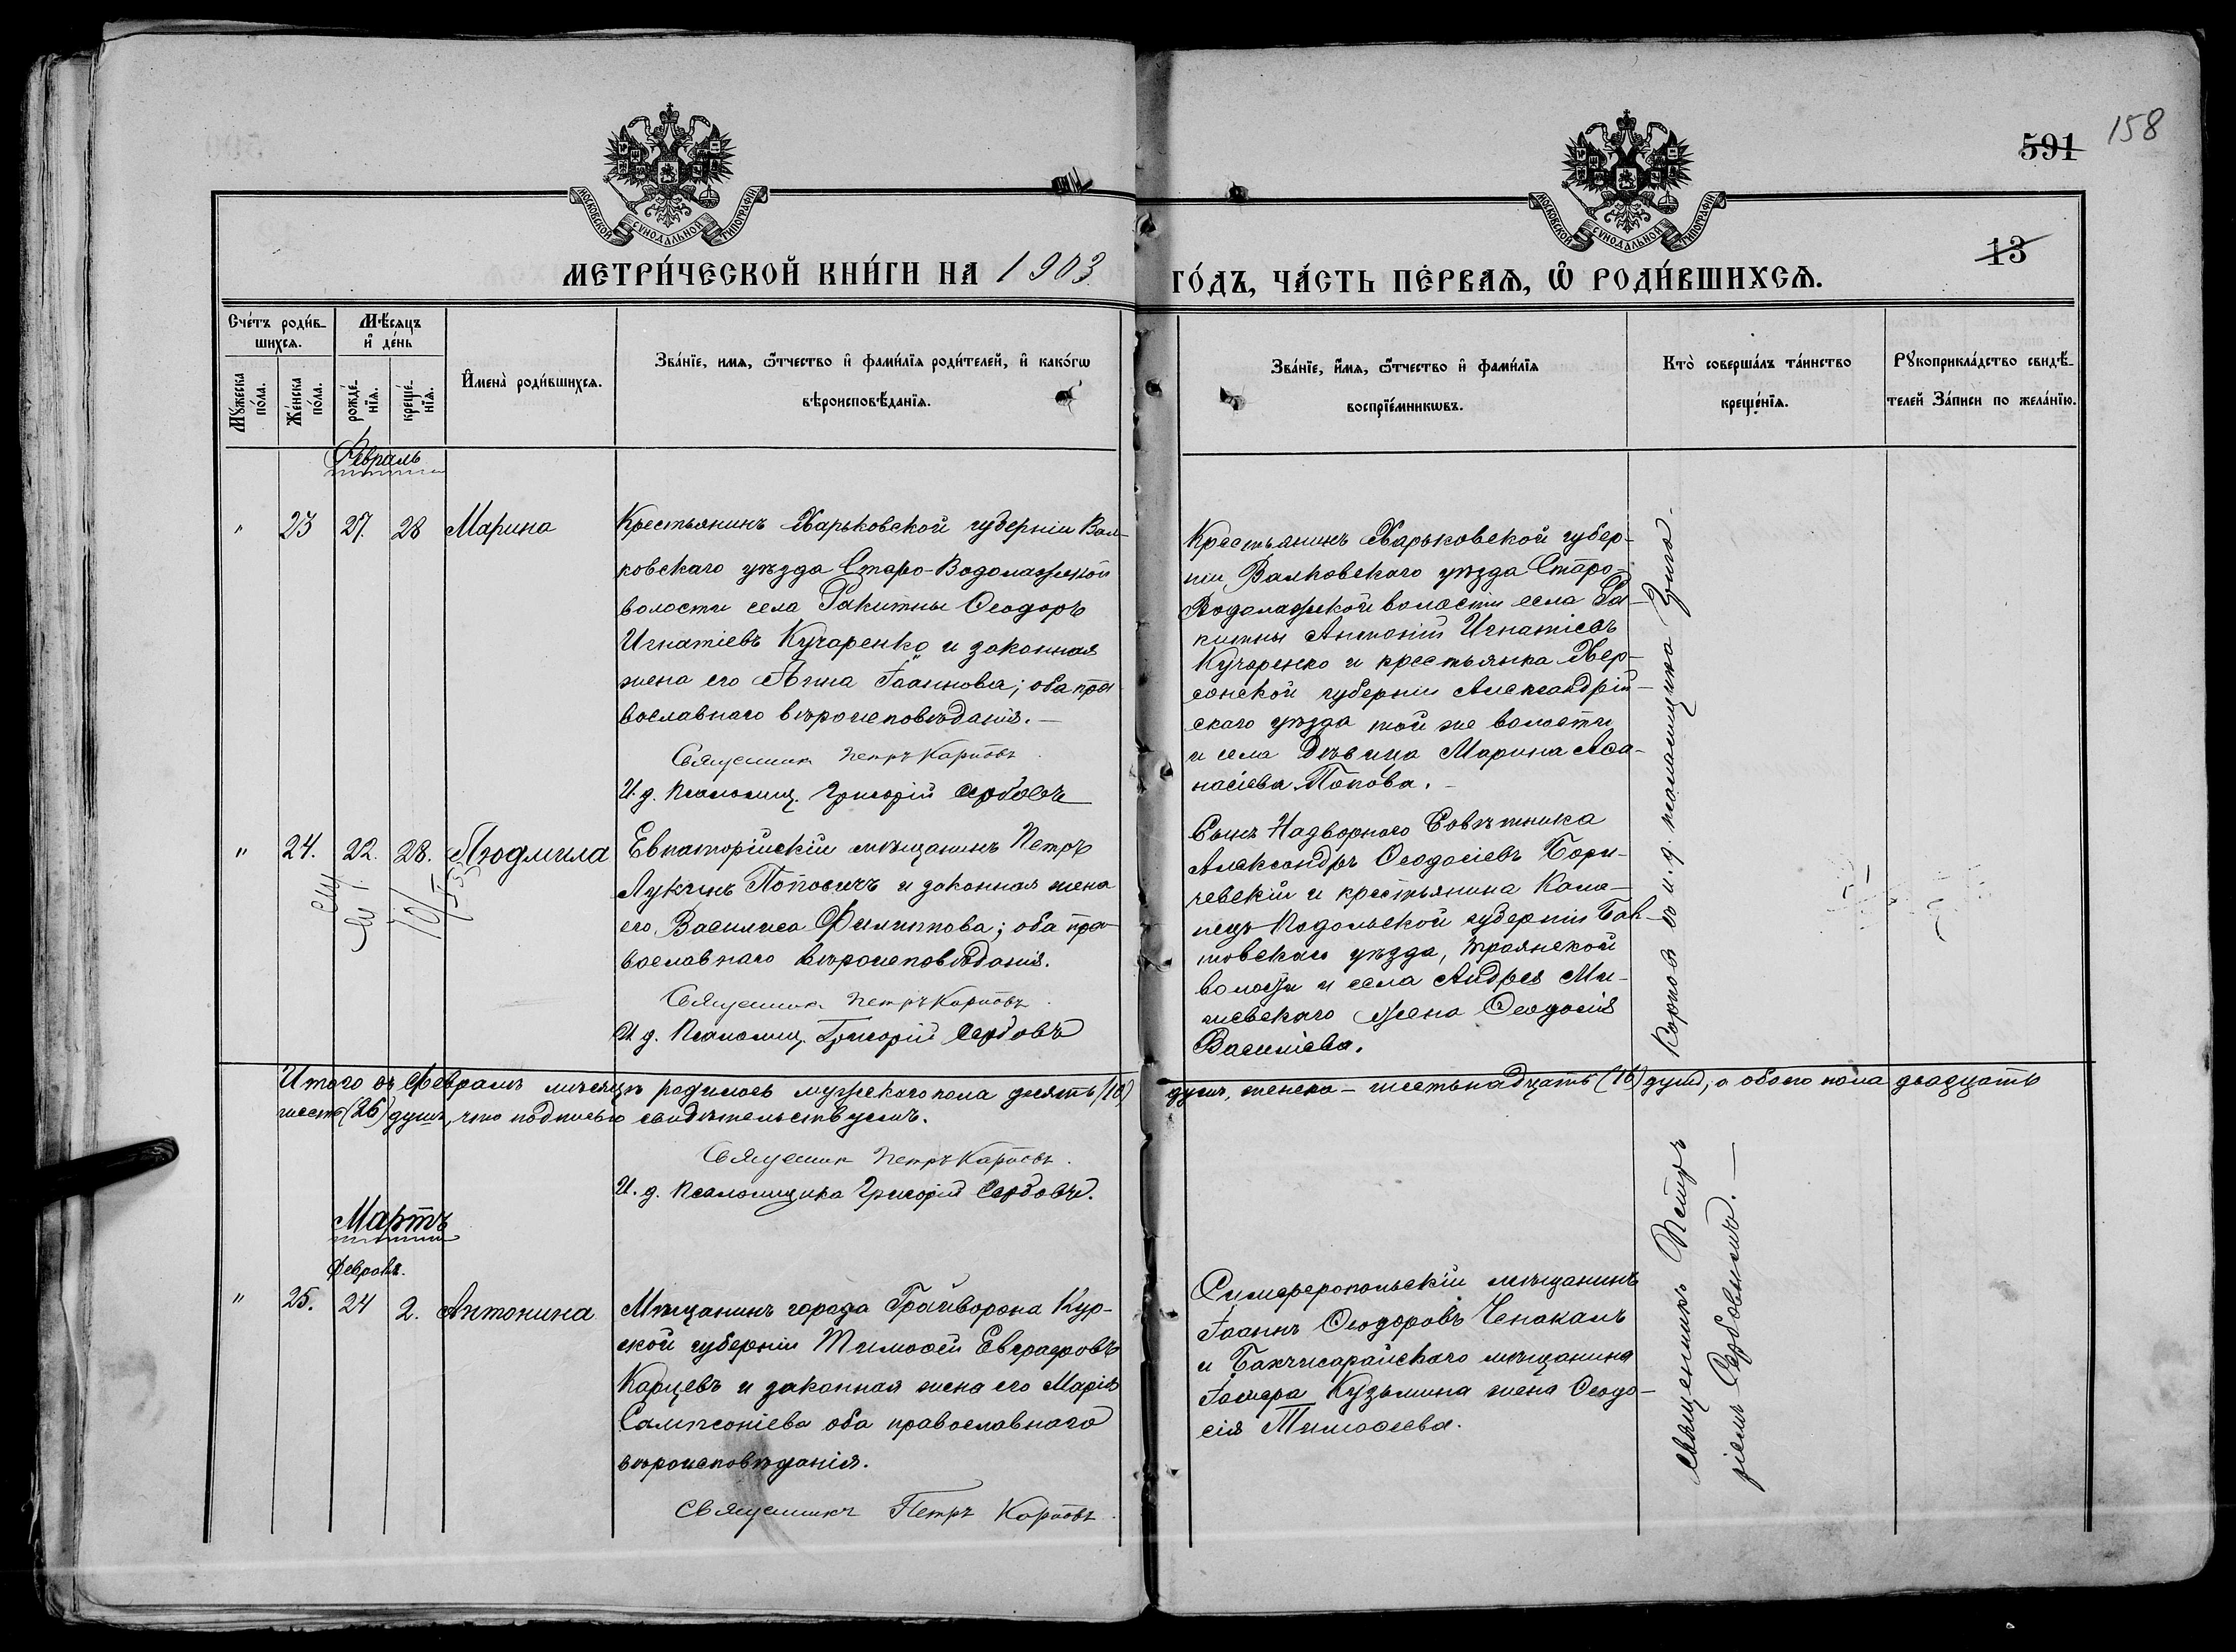 158
591
13
МОСКОВСКОЙ СУНОДАЛЬНОЙ ТИПОГРАФІИ
МОСКОВСКОЙ СУНОДАЛЬНОЙ ТИПОГРАФІИ
МЕТРИ́ЧЕСКОЙ КНИ́ГИ НА 1903 ГО́ДЪ, ЧА́СТЬ ПЕ́РВАѦ, Ѡ҆ РОДИ́ВШИХСѦ.
Сче́тъ роди́в-
шихсѧ.
Мѣ́сѧцъ
и҆ де́нь
Мꙋ́жеска
по́ла.
Же́нска
по́ла.
рожде́-
нїѧ.
креще́-
нїѧ.
И҆мена̀ роди́вшихсѧ.
Зва́нїе, имѧ, ѻ҆́тчество и҆ фами́лїѧ роди́телей, и҆ како́гѡ
вѣроисповѣ́данїѧ.
Зва́нїе, и҆́мѧ, ѻ҆́тчество и҆ фами́лїѧ
воспрїе́мникѡвъ.
Кто̀ соверша́лъ та́инство
креще́нїѧ.
Рꙋкоприкла́дство свидѣ́-
телей За́писи по жела́нїю.
Февраль
" 23 27. 28 Марина
Крестьянинъ Харьковской губерніи Вал-
ковскаго уѣзда Старо-Водолажской
волости села Ракитны Ѳеодоръ
Игнатіевъ Кучаренко и законная
жена его Анна Іоаннова; оба пра-
вославнаго вѣроисповѣданія.—
Священникъ Петръ Карповъ
И. д. Псаломщ. Григорій Сербовъ
Крестьянинъ Харьковской губер-
ніи, Валковскаго уѣзда Старо-
Водолажской волости села Ра-
китны Антоній Игнатіевъ
Кучаренко и крестьянка Хер-
сонской губерніи Александрій-
скаго уѣзда той же волости
и села дѣвица Марина Аѳа-
насіева Попова.—
" 24. 22. 28. Людмила
Евпаторійскій мѣщанинъ Петръ
Лукинъ Поповичъ и законная жена
его Василиса Филиппова; оба пра-
вославнаго вѣроисповѣданія.
Священникъ Петръ Карповъ
И. д. Псаломщ. Григорій Сербовъ
Сынъ Надворнаго Совѣтника
Александръ Ѳеодосіевъ Бори-
чевскій и крестьянина Каме-
нецъ Подольской губерніи Бал-
товскаго уѣзда, Троянской
волости и села Андрея Ми-
жена Ѳеодосія
Василіева.
Итого въ Февралѣ мѣсяцѣ родилось мужескаго пола десять (10) душъ, женска - шестьнадцать (16) душъ, а обоего пола двадцать
шесть (26) душъ, что подписью свидѣтельствуемъ.
Священникъ Петръ Карповъ.
И. д. Псаломщика Григорій Сербовъ.
Мартъ
Февраля.
" 25. 24 2. Антонина
Мѣщанинъ города Грайворона Кур-
ской губерніи Тимоѳей Евграфовъ
Карцевъ и законная жена его Марія
Сампсоніева оба православнаго
вѣроисповѣданія.
Священникъ Петръ Карповъ
Симферопольскій мѣщанинъ
Іоаннъ Ѳеодоровъ Чепакалъ
и Бахчисарайскаго мѣщанина
Кузьмина жена Ѳеодо-
сія Тимоѳеева.
Священникъ Петръ Карповъ съ и. д. псаломщика Григо-
ріемъ Сербовымъ.—